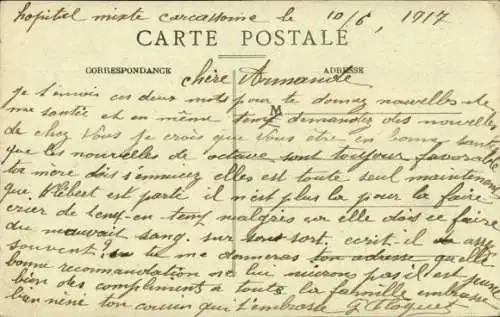 hopital mixte carcassonne le 10/6, 1917
CARTE POSTALE
CORRESPONDANCE
ADRESSE
chère Armande
Je t'envois ces deux mots pour te donnez nouvelles de
M
ma santée et en même temp demandez des nouvelles
de chez vous je crois que vous être en bonne santé
que les nouvelles de octave sont toujour favorable
ta mère dois s'ennuiez elles est toute seul maintenant
que Hébert est partie il n'est plus la pour la faire
crier de temp en temp malgrès sa elle dois ce faire
du mauvait sang. sur sont sort. ecrit il assez
souvent? tu me donneras son adresse quelle
bonne recommandation ne lui nuirons pas il est jeune
bien des compliments à toute la famille embrasse
bien néné ton cousin qui t'embrasse